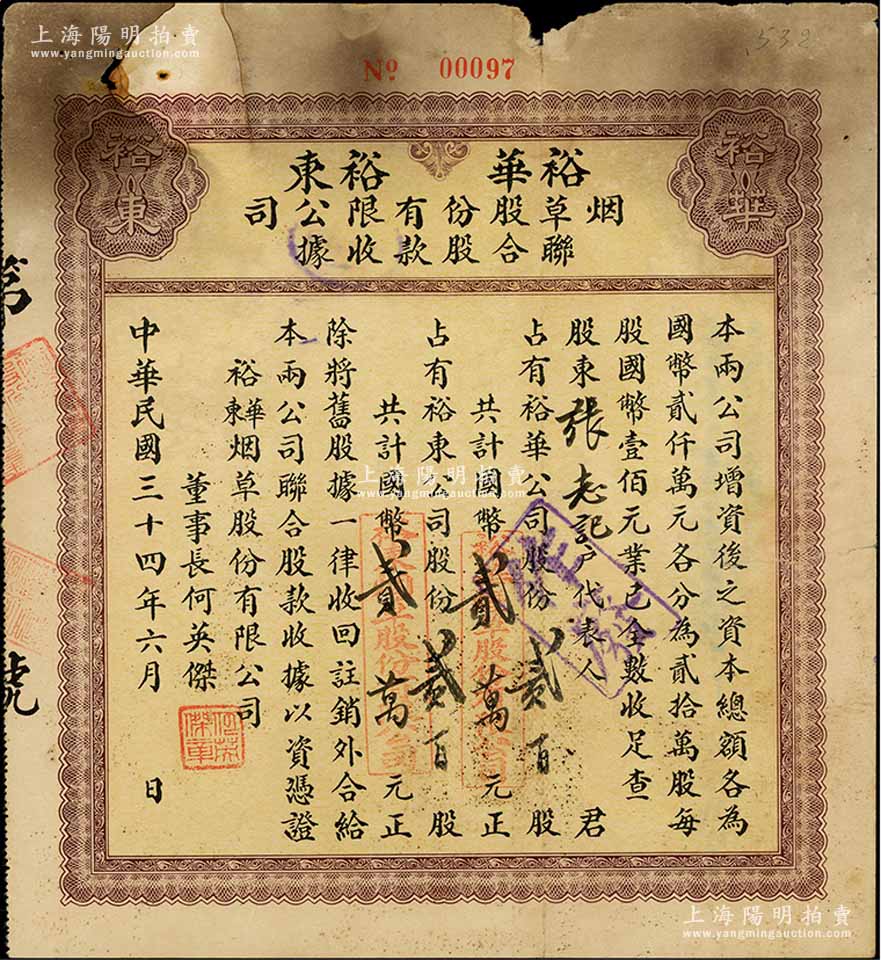 上海陽明拍賣
www.yangmingauction.com
532
Nº 00097
裕華
裕東
裕華 裕東
烟草股份有限公司
聯合股款收據
本兩公司增資後之資本總額各為
國幣貳仟萬元各分為貳拾萬股每
股國幣壹佰元業已全數收足查
股東張志記戶代表人 君
占有裕華公司股份貳百股
共計國幣貳萬元正
占有裕東公司股份貳百股
共計國幣貳萬元正
除將舊股據一律收回註銷外合給
本兩公司聯合股款收據以資憑證
裕華東烟草股份有限公司
董事長何英傑
中華民國三十四年六月 日
號
上海陽明拍賣
www.yangmingauction.com
上海陽明拍賣
www.yangmingauction.com